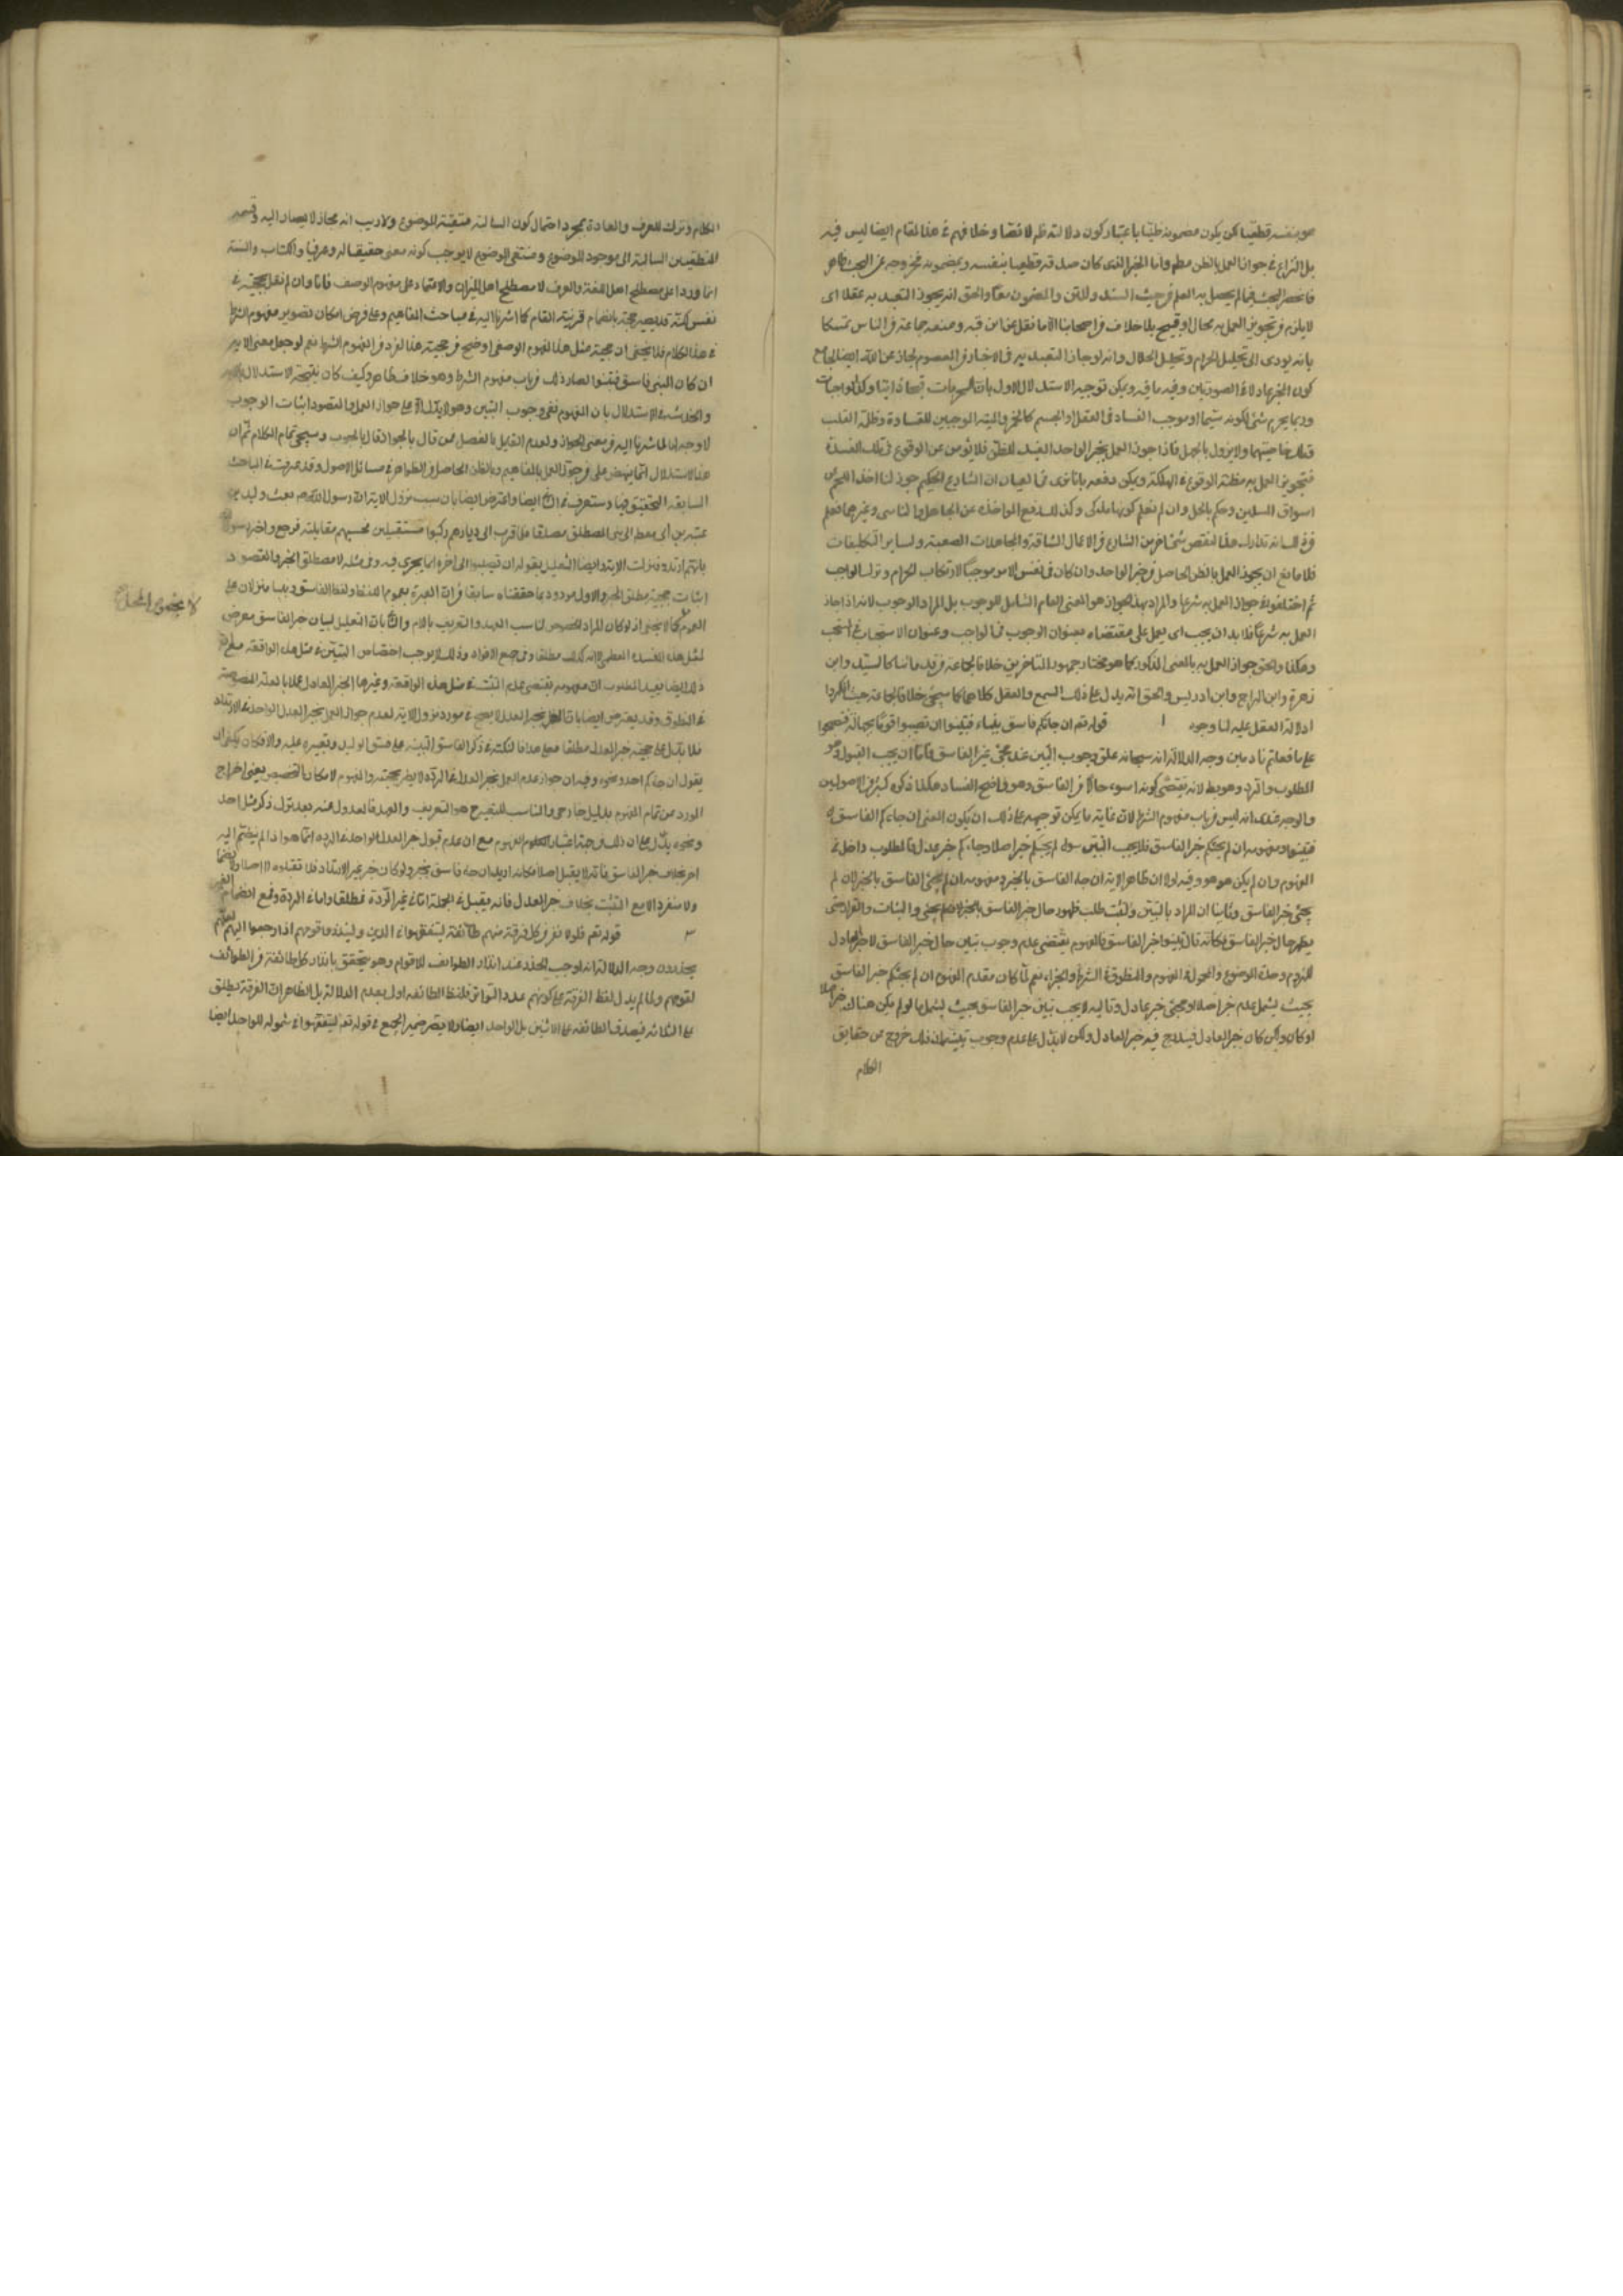 هو بنفسه قطعيا لكن يكون مضمونه ظنيا باعتبار كون دلالته ظنية لا نصا وخلافهم في هذا المقام ايضا ليس فيه
بل النزاع في جواز العمل بالظن مطم واما الخبر الذى كان صدقه قطعيا بنفسه وبمضمونه فخروجه عن البحث ظاهر
فانحصر البحث فيما لم يحصل به العلم من حيث السند والمتن والمضمون معا والحق انه يجوز التعبد به عقلا اى
لا يلزم من تجويز العمل به محال او قبيح بلا خلاف من اصحابنا الا ما نقل عن ابن قبه ومنعه جماعة من الناس تمسكا
بانه يودى الى تحليل الحرام وتحليل الحلال وانه لو جاز التعبد به في الاخبار عن المعصوم لجاز عن الله ايضا لجامع
كون المخبر عادلا في الصورتين وفيه ما فيه ويكن توجيه الاستدلال الاول بان المحرمات
وربما يحرم شئ لكونه سما او موجب الفساد فى العقل او الجسم كالخمر والميتة الموجبين للقساوة وظلة القلب
وتلك خاصيتهما ولا يزول بالجهل فاذا جوز العمل بخبر الواحد المفيد للظن فلا يؤمن عن الوقوع فى تلك المفسدة
فتجويز العمل به مظنة الوقوع في الهلكة ويكن دفعه بانا نرى في العيان ان الشارع الحكيم جوز لنا اخذ اللحم من
اسواق المسلمين وحكم بالحل وان لم نعلم كونها مذكى وكذلك رفع المواخذة عن الجاهل والناسى وغيرهما فعلم
من ذلك انه تدارك هذا النقص بشئ اخر من الشارع من الاعمال الشاقة والمجاهدات الصعبة وساير التكليفات
فلا مانع ان يجوز العمل بالظن الحاصل من خبر الواحد وان كان فى نفس الامر موجبا لارتكاب الحرام وترك الواجب
ثم اختلفوا في جواز العمل به شرعا والمراد بهذا الجواز هو المعنى العام الشامل للوجوب بل المراد الوجوب لانه اذا جاز
العمل به شرعا فلا بد ان يجب اى يعمل على مقتضاه بعنوان الوجوب في الواجب وعنوان الاستحباب في المستحب
وهكذا والحق جواز العمل به بالمعنى المذكور كما هو مختار جمهور المتاخرين خلافا لجماعة من قدمائنا كالسيد وابن
زهرة وابن البراج وابن ادريس والحق انه يدل على ذلك السمع والعقل كلاهما كما سيجئ خلافا لجماعة حيث انكروا
دلالة العقل عليه لنا وجوه ا قوله تعم ان جائكم فاسق بنباء فتبينوا ان تصيبوا قوما بجهالة فتصبحوا
على ما فعلتم نادمين وجه الدلالة انه سبحانه علق وجوب التبين عند مجئ خبر الفاسق فاما ان يجب القبول وهو
المطلوب والرد وهو بط لانه يقتضى كونه اسوء حالا من الفاسق وهو واضح الفساد هكذا ذكره كثير من الاصوليين
والوجه عندى انه ليس من باب مفهوم الشرط لان غاية ما يكن توجيهه على ذلك ان يكون المعنى ان جاءكم الفاسق
فتبينوا ومفهومه ان لم يجئكم خبر الفاسق فلا يجب التبين سواء لم يجئكم خبر اصلا او جاءكم خبر عدل فالمطلوب داخل في
المفهوم وان لم يكن هو هو وفيه اولا ان ظاهر الاية ان جاء الفاسق بالخبر ومفهومه ان لم يجئ الفاسق بالخبر لا ان لم
يجئ خبر الفاسق وثانيا ان المراد بالتبين والتثبت طلب ظهور حال خبر الفاسق
يظهر حال خبر الفاسق فكانه قال تبينوا خبر الفاسق فالمفهوم يقتضى عدم وجوب تبين حال خبر الفاسق لا خبر العادل
للزوم وحدة الموضوع والمحمول في المفهوم والمنطوق في الشرط والجزاء نعم لما كان مقدم المفهوم ان لم يجئكم خبر الفاسق
بحيث يشمل عدم خبر اصلا او مجئ خبر عادل وتاليه لا يجب تبين خبر الفاسق بحيث يشمل ما لو لم يكن هناك خبر اصلا
او كان ولكن كان خبر العادل فيندرج فيه خبر العادل ولكن لا يدل على عدم وجوب تبينه لان ذلك خروج عن حقايق
الكلام
الكلام وترك للعرف والعادة بمجرد احتمال كون السالبة منتفية الموضوع ولا ريب انه مجاز لا يصار اليه وقسمة
المنطقيين السالبة الى موجود الموضوع ومنتفى الموضوع لا يوجب كونه معنى حقيقيا له وعرفيا والكتاب والسنة
انما وردا على مصطلح اهل اللغة والعرف لا مصطلح اهل الميزان والاعتماد على مفهوم الوصف فانا وان لم نقل بحجيته في
نفسه لكنه قد يصير حجة بانضمام قرينة المقام كما اشرنا اليه في مباحث المفاهيم وعلى فرض امكان تصوير مفهوم الشرط
في هذا الكلام فلا يخفى ان حجية مثل هذا المفهوم الوصفى اوضح من حجية هذا الفرد من المفهوم الشرط نعم لو جعل معنى الاية
ان كان المنبئ فاسق فتبينوا لصار ذلك من باب مفهوم الشرط وهو خلاف ظاهر وكيف كان
والخدشة في الاستدلال بان المفهوم نفى وجوب التبين وهو لا يدل الا على جواز العمل والمقصود اثبات الوجوب
لا وجه لها لما اشرنا اليه من معنى الجواز ولعدم القايل بالفصل فمن قال بالجواز قال بالوجوب وسيجئ تمام الكلام ثم ان
هذا الاستدلال انما ينهض على من جوز العمل بالمفاهيم وبالظن الحاصل من الظواهر في مسائل الاصول وقد عرفت في المباحث
السابقة التحقيق فيها وستعرف في ايضا واعترض ايضا بان سبب نزول الاية ان رسول الله ص بعث وليد بن
عتبة بن ابى معيط الى بنى المصطلق مصدقا فلما قرب الى ديارهم ركبوا مستقبلين فحسبهم مقاتلة فرجع واخبر رسول
بانهم ارتدوا فنزلت الاية وايضا التعليل بقوله ان تصيبوا الى اخره انما يجرى فيه وفى مثله لا مصطلق الخبر والمقصود
اثبات حجية مطلق الخبر والاول مردود بما حققناه سابقا من ان العبرة بعموم اللفظ ولفظ الفاسق ونبا منزلان على
العموم كما لا يخفى اذ لو كان المراد الخصوص لناسب العهد والتعريف باللام والثانى بان التعليل لبيان خبر الفاسق معرض
لا بخصوص المحل
لمثل هذه المفسدة العظمى لا انه كذلك مطلقا وفى جميع الافراد وذلك لا يوجب اختصاص التبين في مثل هذه الواقعة
ذلك ايضا يفيد المطلوب لان مفهومه يقتضى عدم التثبت في مثل هذه الواقعة وغيرها لخبر العادل عملا بالعلة المنصوصة
في المنطوق وقد يعترض ايضا بان العمل بخبر العدل لا يصح في مورد نزول الاية لعدم جواز العمل بخبر العدل الواحد في الارتداد
فلا يدل على حجية خبر العدل مطلقا فعلى هذا فالنكتة في ذكر الفاسق التنبيه على فسق الوليد وتعييره عليه والا فكان يكفى ان
يقول ان جاءكم احد ونحوه وفيه ان جواز عدم العمل بخبر العدل في الردة لا يضر بحجية والمفهوم لامكان التخصيص يعنى اخراج
المورد من تمام المفهوم بدليل خارجى والمناسب للتصريح هو التعريف والعهد فالعدول عنه بعد ترك ذكر مثل احد
ونحوه يدل على ان ذلك من جهة اعتبار المفهوم مع ان عدم قبول خبر العدل الواحد في الردة انما هو اذا لم ينضم اليه
اخر بخلاف خبر الفاسق فانه لا يقبل اصلا فكانه اريد ان جاء فاسق بخبر ولو كان خبر غير الارتداد فلا تقبلوه لا اصلا ولا منضما
ولا منفردا الا مع التثبت بخلاف خبر العدل فانه يقبل في الجملة اما في غير الردة فمطلقا واما في الردة فمع انضمام الغير
٢ قوله تعم فلولا نفر من كل فرقة منهم طائفة ليتفقهوا في الدين ولينذروا قومهم اذا رجعوا اليهم لعلهم
يحذرون وجه الدلالة انه اوجب الحذر عند انذار الطوايف للاقوام وهو يتحقق بانذار كل طائفة من الطوائف
لقومهم ولما لم يدل لفظ الفرقة على كونهم عدد التواتر فلفظ الطائفة اولى بعدم الدلالة بل الظاهر ان الفرقة يطلق
على الثلاثة فيصدق الطائفة على الاثنين بل الواحد ايضا ولا يضر ضمير الجمع في قوله تع ليتفقهوا في شموله للواحد ايضا